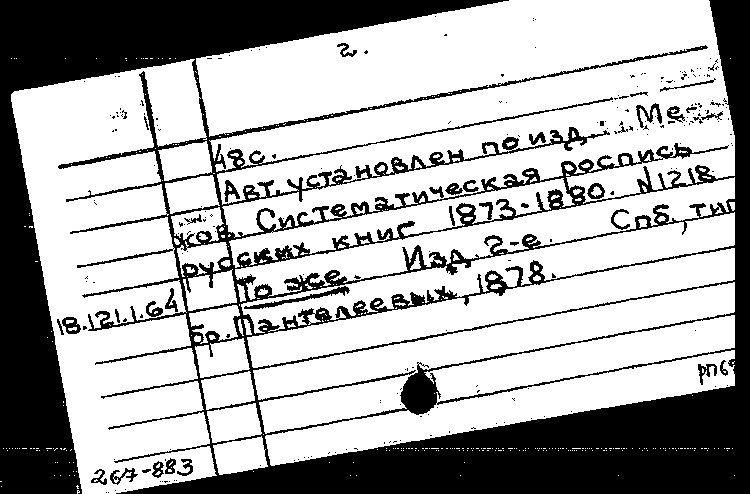 2.
48с.
Авт. установлен по изд.: Ме-
жов. Систематическая роспись
русских книг 1873-1880. N1218
То же. Изд. 2-е. Спб., тип.
18.121.1.64
бр. Пантелеевых, 1878.
рп69
267-883